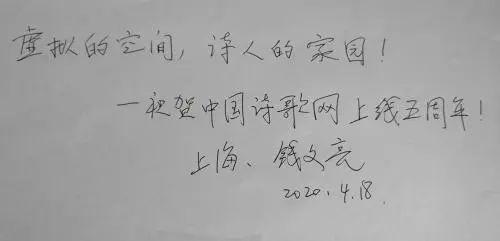 虚拟的空间，诗人的家园！
一祝贺中国诗歌网上线五周年！
上海、钱文亮
2020.4.18.